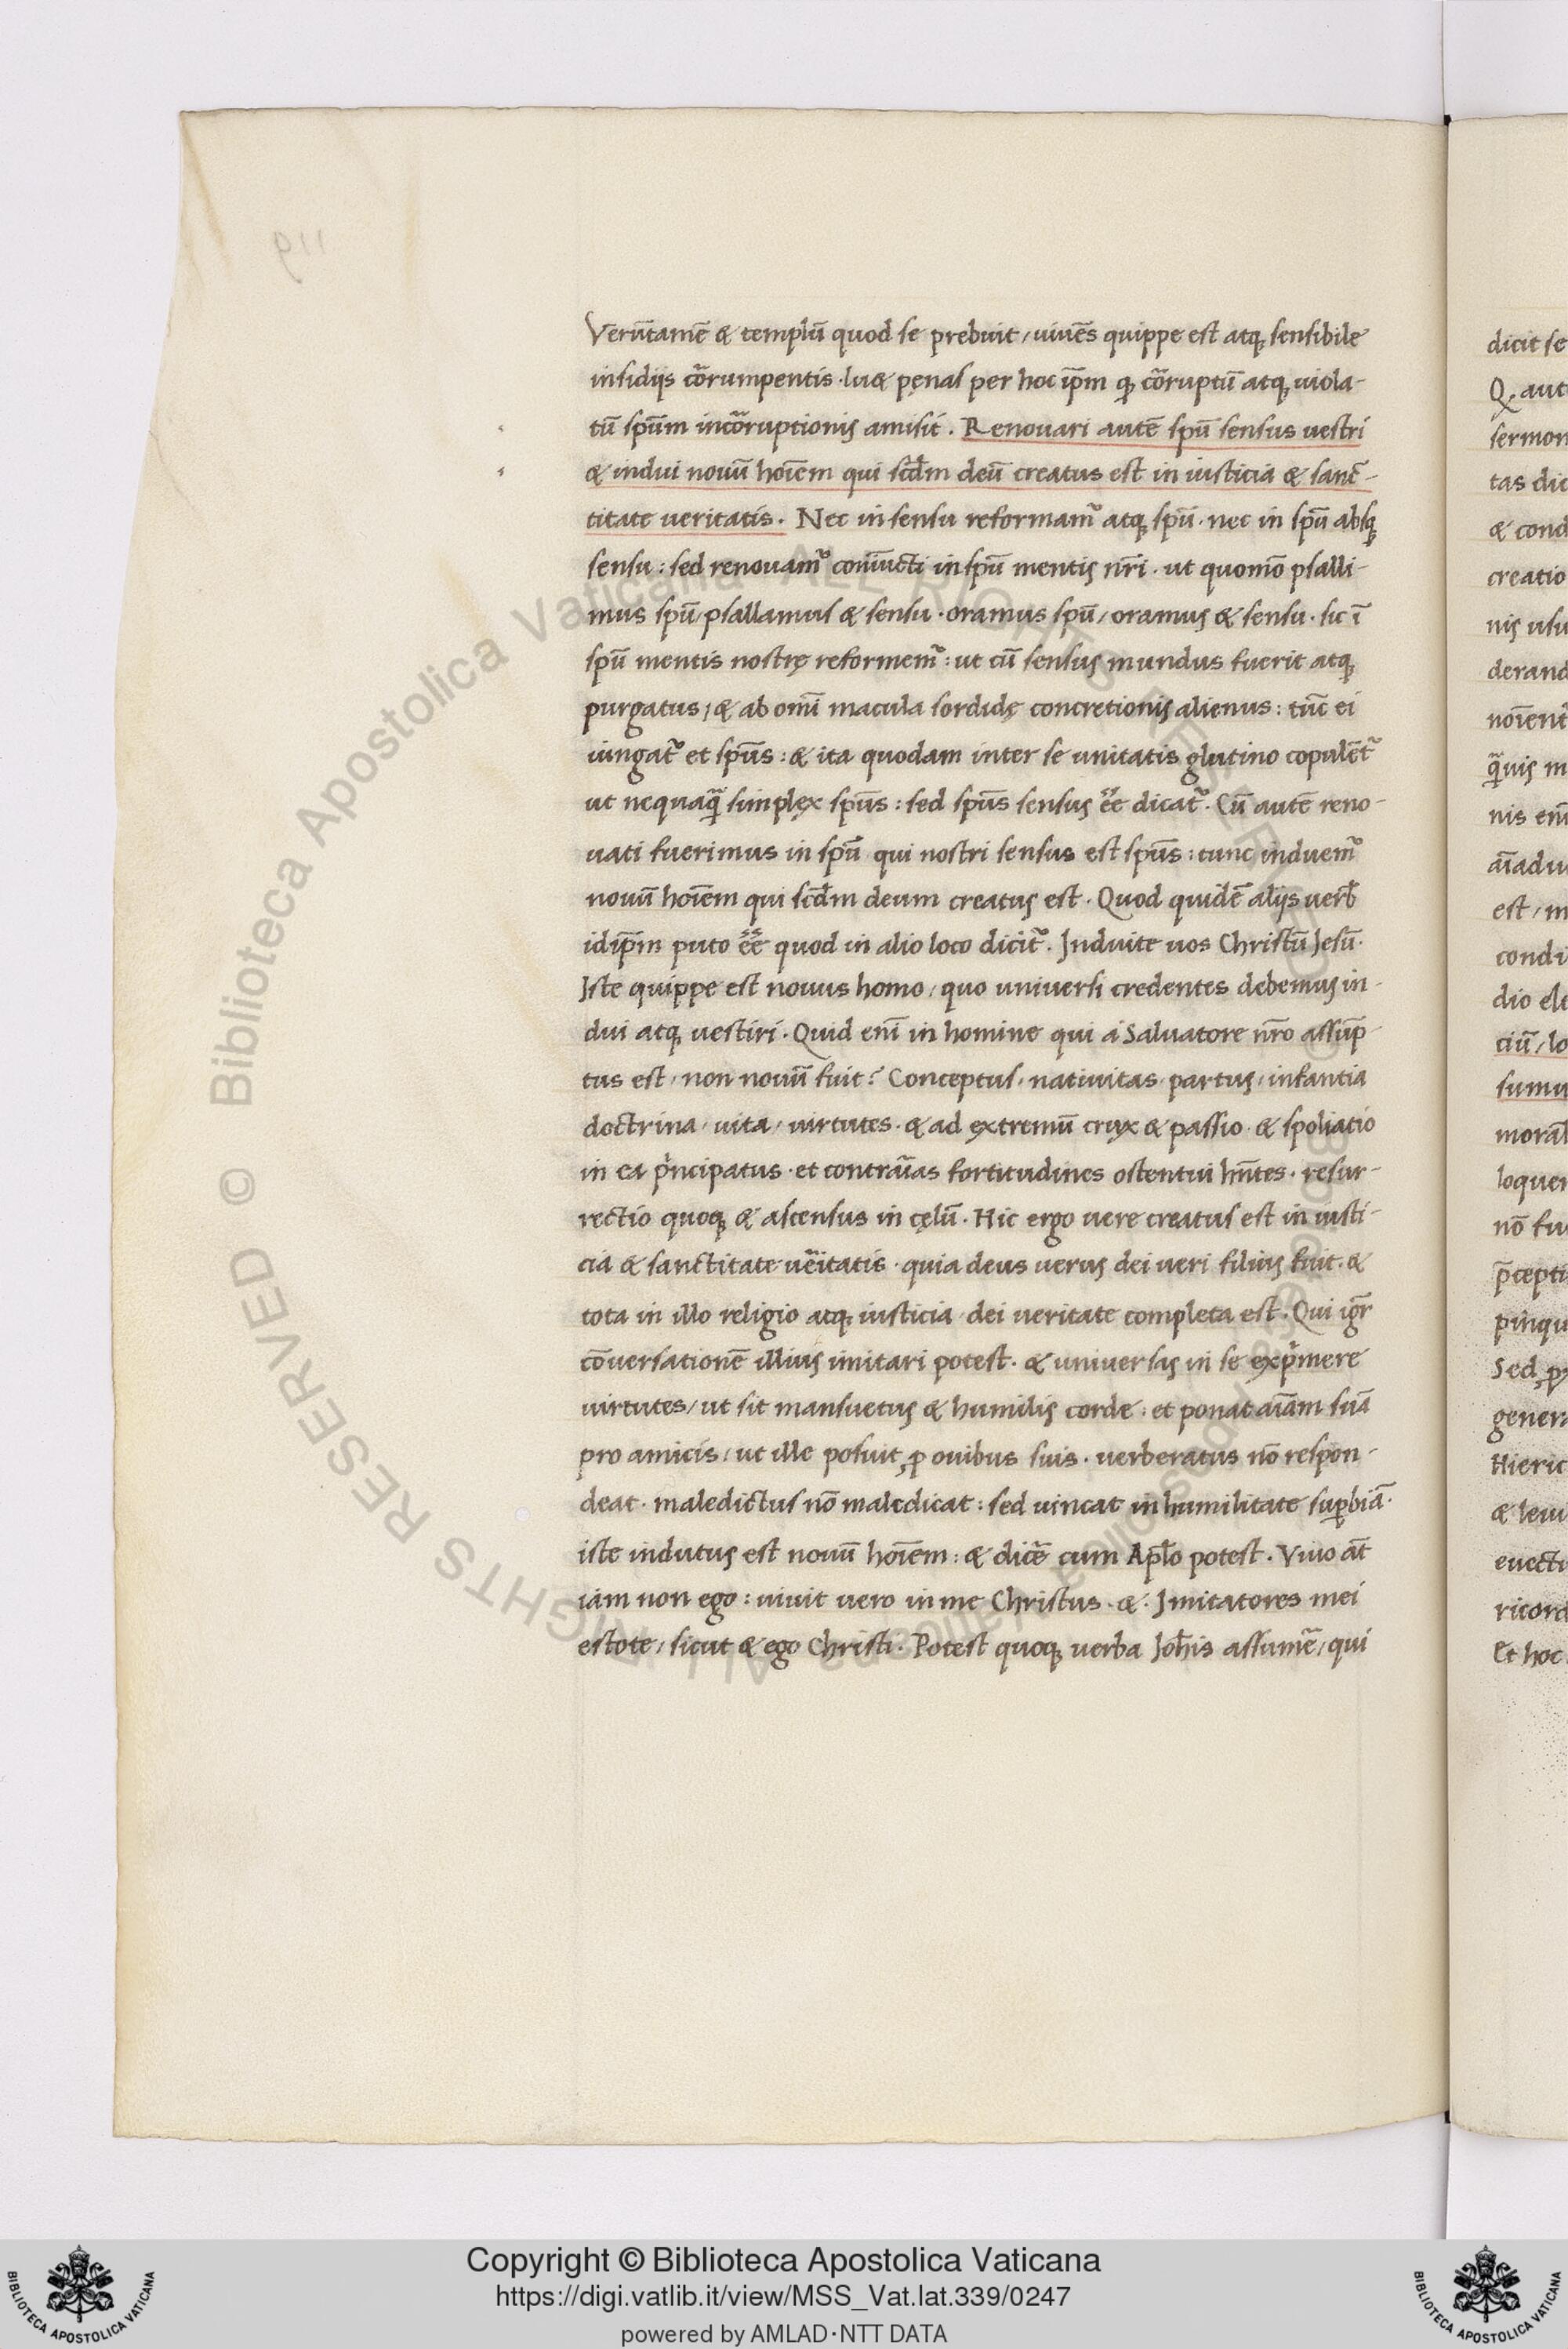 Verūtamē & templū quod se prebuit / uiuēs quippe est atq; sensibile
insidijs cōrumpentis · luæ pęnas per hoc ip̄m q̄ cōruptū atq; uiola-
tū sp̄um incōruptionis amisit . Renouari autē sp̄u sensus uestri
& indui nouū hoīem qui scd̄m deū creatus est in iusticia & sanc-
titate ueritatis . Nec in sensu reformam² atq; sp̄u · nec in sp̄u absq;
sensu : sed renouam² coniūcti in sp̄u mentis nr̄i · ut quomō psalli-
mus sp̄u / psallamus & sensu · oramus sp̄u / oramus & sensu · sic ī
sp̄u mentis nostrę reformem² : ut cū sensus mundus fuerit atq;
purgatus ; & ab omī macula sordidę concretionis alienus : tūc ei
iungat² et sp̄us : & ita quodam inter se unitatis glutino copulēt²
ut nequaq̄ simplex sp̄us : sed sp̄us sensus ēē dicat² . Cū autē reno-
uati fuerimus in sp̄u qui nostri sensus est sp̄us : tunc induem²
nouū hoīem qui scd̄m deum creatus est . Quod quidē alijs uerb̄
idip̄m puto ēē quod in alio loco dicit² . Induite uos Christū Jesū ·
Iste quippe est nouus homo / quo uniuersi credentes debemus in-
dui atq; uestiri . Quid enī in homine qui a Saluatore nr̄o assūp-
tus est / non nouū fuit ? Conceptus · natiuitas · partus / infantia
doctrina / uita / uirtutes · & ad extremū crux & passio · & spoliatio
in ea p̄ncipatus · et contrāias fortitudines ostentui hn̄tes · resur-
rectio quoq; & ascensus in cęlū . Hic ergo uere creatus est in iusti-
cia & sanctitate uēitatis · quia deus uerus dei ueri filius fuit . &
tota in illo religio atq; iusticia dei ueritate completa est . Qui igr̄
cōuersationē illius imitari potest · & uniuersas in se exp̄mere
uirtutes / ut sit mansuetus & humilis corde : et ponat aīam suā
pro amicis / ut ille posuit p̱ ouibus suis · uerberatus nō respon-
deat · maledictus nō maledicat : sed uincat in humilitate sup̱biā ·
iste indutus est nouū hoīem : & dicē cum Ap̄lo potest . Viuo āt
iam non ego : uiuit uero in me Christus · & · Imitatores mei
estote / sicut & ego Christi . Potest quoq; uerba Joh̄is assumē / qui
dicit se
Q. aut
sermon
tas dic
& cond
creatio
nis usu
derand
noīent
q̄uis m
nis enī
aīadu
est / m
condi
dio ele
ciū / lo
sumu
moral
loquer
nō fu
p̄cepti
pinqu
Sed
genera
Hieric
& leui
euectu
ricord
Et hoc
© Biblioteca Apostolica Vaticana ALL RIGHTS RESERVED
Copyright © Biblioteca Apostolica Vaticana
https://digi.vatlib.it/view/MSS_Vat.lat.339/0247
powered by AMLAD·NTT DATA
BIBLIOTECA APOSTOLICA VATICANA
BIBLIOTECA APOSTOLICA VATICANA